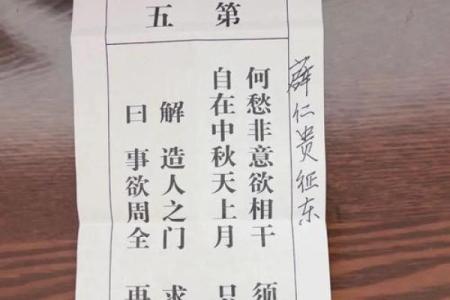 薛仁贵征东
第
五
何愁非意欲相干 须
自在中秋天上月 只
解 造人之门 求
曰 事欲周全 再